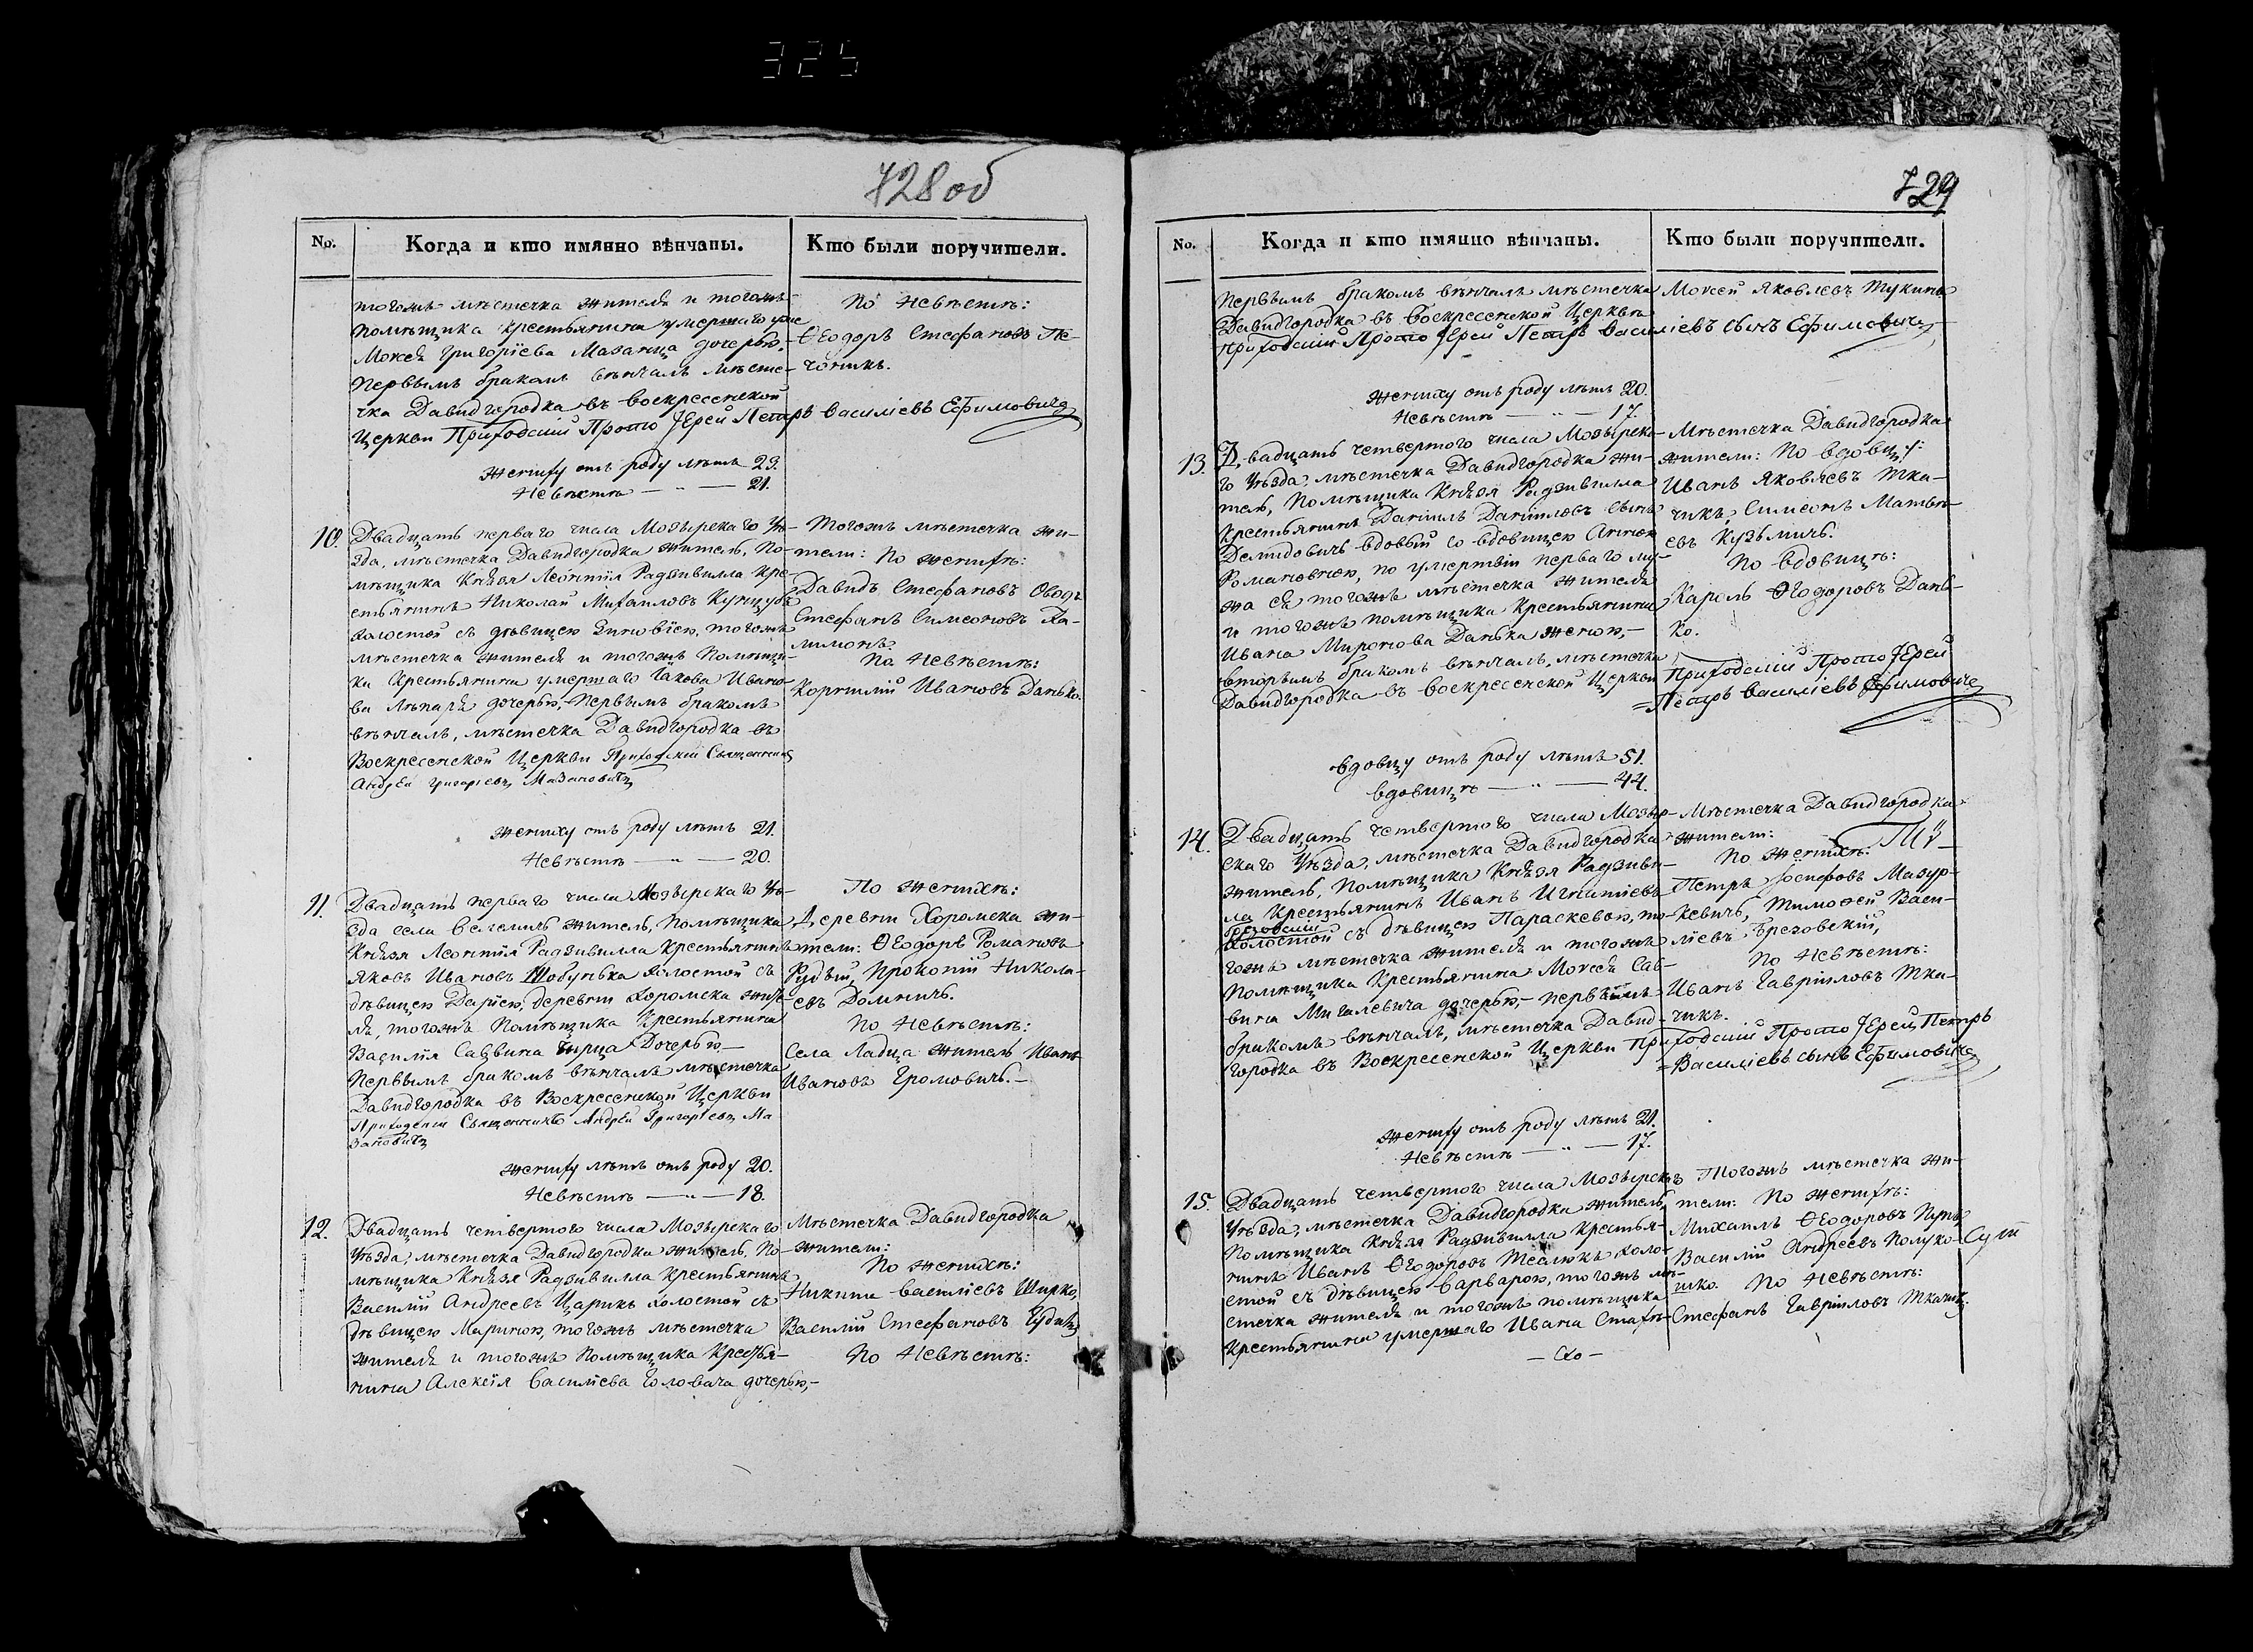 325
728 об
No.
Когда и кто имянно вѣнчаны.
Кто были поручители.
тогожъ мѣстечка жителя и тогожъ
помѣщика крестьянина умершаго уже
Моисея Григоріева Мазанца дочерью,
первымъ бракомъ вѣнчалъ мѣсте-
чка Давидгородка въ воскресенской
Церкви Приходскій Прото Іерей Петръ Василіевъ Ефимовичъ
По невѣстѣ:
Ѳеодоръ Стефановъ Пе-
чоникъ.
жениху отъ роду лѣтъ 23.
Невѣстѣ — " — 21.
10.
Двадцать перваго числа Мозырскаго Уѣ-
зда, мѣстечка Давидгородка житель, По-
мѣщика Князя Леонтія Радзивилла Кре-
стьянинъ Николай Михаиловъ Кунцубъ
холостой съ дѣвицею Зиновіею, тогожъ
мѣстечка жителя и тогожъ Помѣщи-
ка Крестьянина умершаго Іакова Ивано-
ва дочерью, Первымъ бракомъ
вѣнчалъ, мѣстечка Давидгородка въ
Воскресенской Церкви Приходскій Священникъ
Андрей Григоріевъ Мазановичъ
Тогожъ мѣстечка жи-
тели: По женихѣ:
Давидъ Стефановъ Оводъ
Стефанъ Симеоновъ Ха-
лимонъ.
По Невѣстѣ:
Корнилій Ивановъ Данько.
жениху отъ роду лѣтъ 21.
Невѣстѣ — " — 20.
11.
Двадцать перваго числа Мозырскаго Уѣ-
зда села Велемичъ житель, Помѣщика
Князя Леонтія Радзивилла Крестьянинъ
Яковъ Ивановъ Шобунька холостой съ
дѣвицею Даріею, деревни Хоромска жите-
ля, тогожъ Помѣщика Крестьянина
Василія Саввина Дочерью —
Первымъ бракомъ вѣнчалъ мѣстечка
Давидгородка въ Воскресенской Церкви
Приходскій Священникъ Андрей Григоріевъ Ма
зановичъ
По женихѣ:
Деревни Хоромска жи-
тели: Ѳеодоръ Романовъ
Рудый, Прокопій Никола-
евъ Домничъ.
По Невѣстѣ:
Села Ладца житель Иванъ
Ивановъ Громовичъ. —
жениху лѣтъ отъ роду 20.
Невѣстѣ — " — 18.
12.
Двадцать четвертого числа Мозырскаго
Уѣзда, мѣстечка Давидгородка житель, По-
мѣщика Князя Радзивилла Крестьянинъ
Василій Андреевъ Царикъ холостой съ
дѣвицею Мариною, тогожъ мѣстечка
жителя и тогожъ Помѣщика Крестья-
нина Алексія Василіева Головача дочерью, —
Мѣстечка Давидгородка
жители:
По женихѣ:
Никита Василіевъ Ширко,
Василій Стефановъ
По Невѣстѣ:
729
No.
Когда и кто имянно вѣнчаны.
Кто были поручители.
Первымъ бракомъ вѣнчалъ мѣстечка
Давидгородка въ Воскресенской Церкви
Приходскій Прото Іерей Петръ Василіевъ сынъ Ефимовичъ
Моисей Яковлевъ Тукинъ
жениху отъ роду лѣтъ 20.
Невѣстѣ — " — 17.
13.
Двадцать четвертого числа Мозырска-
го Уѣзда, мѣстечка Давидгородка жи-
тель, Помѣщика Князя Радзивилла
Крестьянинъ Даніилъ Даніиловъ сынъ
Демидовичъ вдовый со вдовицею Анною
Романовною, по умертвіи перваго му-
жа ея тогожъ мѣстечка жителя
и тогожъ помѣщика Крестьянина
Ивана Миронова Данька женою, —
вторымъ бракомъ вѣнчалъ, мѣстечка
Давидгородка въ воскресенской Церкви
Мѣстечка Давидгородка
жители: По вдовцу:
Иванъ Яковлевъ Тка-
чикъ, Симеонъ Матвѣ-
евъ Кузьмичъ.
По вдовицѣ:
Кароль Ѳеодоровъ Дань-
ко.
Приходскій Прото Іерей
Петръ Василіевъ Ефимовичъ
вдовцу отъ роду лѣтъ 51.
вдовицѣ — " — 44.
14.
Двадцать четвертого числа Мозыр-
скаго Уѣзда, мѣстечка Давидгородка
житель, Помѣщика Князя Радзиви-
ла Крестьянинъ Иванъ Игнатіевъ
Брезовскій
холостой съ дѣвицею Параскевою, то-
гожъ мѣстечка жителя и тогожъ
Помѣщика Крестьянина Моисея Сав-
вина Мигалевича дочерью, — первымъ
бракомъ вѣнчалъ, мѣстечка Давид-
городка въ Воскресенской Церкви Приходскій Прото Іерей Петръ
Василіевъ сынъ Ефимовичъ
Мѣстечка Давидгородка
жители:
По женихѣ:
Петръ Іосифовъ Мазур-
кевичъ, Тимоѳей Васи-
ліевъ Брезовскій,
По Невѣстѣ:
Иванъ Гавріиловъ Тка-
чикъ.
жениху отъ роду лѣтъ 21.
Невѣстѣ — " — 17.
15.
Двадцать четвертого числа Мозырскъ
Уѣзда, мѣстечка Давидгородка житель,
Помѣщика Князя Радзивилла Крестья-
нинъ Иванъ Ѳеодоровъ Теслюкъ холо-
стой съ дѣвицею Варварою, тогожъ мѣ-
стечка жителя и тогожъ помѣщика
Крестьянина умершаго Ивана Стахѣ-
Тогожъ мѣстечка жи-
тели: По женихѣ:
Михаилъ Ѳеодоровъ
Василій Андреевъ Полухо-
шко. По Невѣстѣ:
Стефанъ Гавріиловъ Ткачикъ.